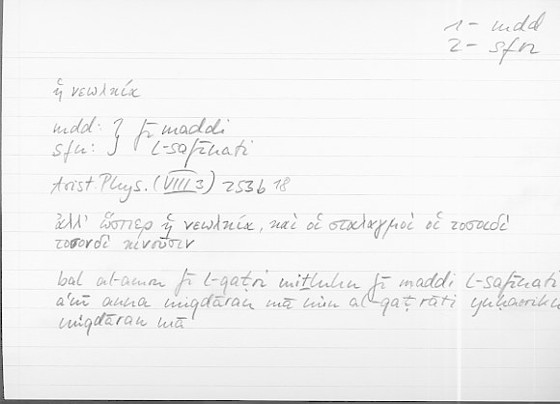 1- mdd
2- sfn
ἡ νεωλκία
mdd: } fī maddi
sfn: } l-safīnati
Arist. Phys. (VIII 3) 253b 18
ἀλλ' ὥσπερ ἡ νεωλκία, καὶ οἱ σταλαγμοὶ οἱ τοσοιδὶ
τοσονδὶ κινοῦσιν
bal al-amru fī l-qaṭri miṯluhu fī maddi l-safīnati
a'nī anna miqdāran mā min al-qaṭrāti yuḥarriku
miqdāran mā